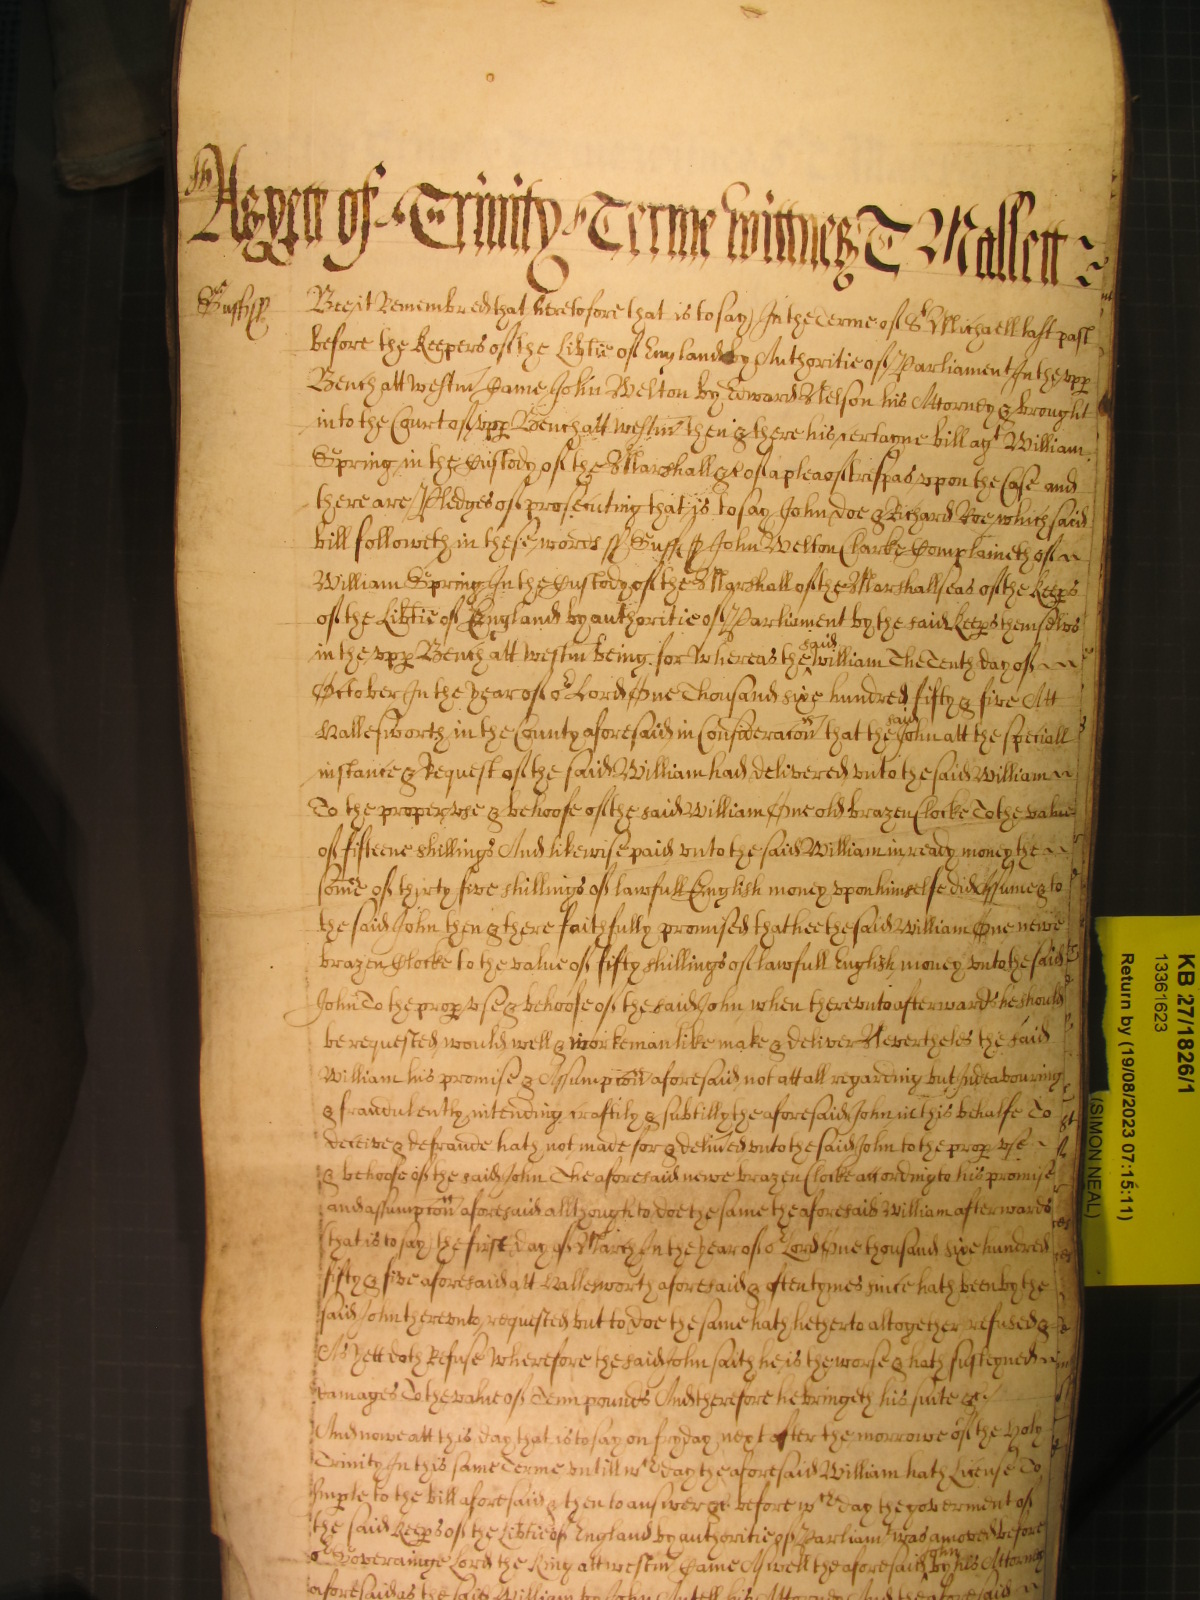 As yett of Trinity Terme wittnes T Mallett
Suff ss
Bee it Remembred that heretofore that is to say In the Terme of St Michaell last past
before the Keepers of the Libtie of England by Authoritie of Parliament In the upp
Bench att Westm Came John Welton by Edward Nelson his Attorney & brought
into the Court of upp Bench att Westm then & there his certayne bill agt William
Spring in the Custody of the Marshall &c of a plea of trespas upon the Case and
there are Pledges of prosecuting that is to say John Doe & Richard Roe which said
bill followeth in these words ss Suff ss John Welton Clarke Complaineth of
William Spring In the Custody of the Marshall of the Marshallseas of the Keeps
of the Libtie of England by authoritie of Parliament by the said Keeps themselves
in the upp Bench att Westm being for Whereas the said William The Tenth day of
October In the Year of or Lord One Thousand sixe hundred fifty & five Att
Hallesworth in the County aforesaid in Consideracon that the said John att the speciall
instance & Request of the said William had delivered unto the said William
To the proper use & behoofe of the said William One old brazen Clocke To the value
of fifteene shillings And likewise paid unto the said William in ready money the
some of thirty five shillings of lawfull English money upon himselfe did Assume & to
the said John then & there faithfully promised that hee the said William One newe
brazen Clocke to the value of fifty shillings of lawfull English money unto the said
John To the prop use & behoofe of the said John when thereunto afterwards he should
be requested would well & workemanlike make & deliver Nevertheles the said
William his promise & Assumpcon aforesaid not att all regarding but Indeavouring
& fraudulently intending craftily & subtilly the aforesaid John in this behalfe To
deceive & defraude hath not made for & delived unto the said John to the prop use
& behoofe of the said John The aforesaid newe brazen Clocke according to his promise
and assumpcon aforesaid allthough to doe the same the aforesaid William afterwards
that is to say the first day of March In the Year of or Lord One thousand sixe hundred
fifty & five aforesaid att Hallesworth aforesaid & oftentymes since hath been by the
said John thereunto requested but to doe the same hath hetherto altogether refused &
As Yett doth Refuse Wherefore the said John saith he is the worse & hath susteyned
damages To the value of Tenn pounds And therefore he bringeth his suite &c
And nowe att this day that is to say on fryday next after the morrowe of the Holy
Trinity In this same Terme untill wch day the aforesaid William hath License To
Imple to the bill aforesaid & then to answer &c before wch day the goverment of
the said Keeps of the Libtie of England by authoritie of Parliam was amoved before
or Soveraigne Lord the King att Westm Came Aswell the aforesaid John by his Attorney
aforesaid as the said William by John Antell his Attorney And the aforesaid
KB 27/1826/1
13361623
Return by (19/08/2023 07:15:11)
(SIMON NEAL)